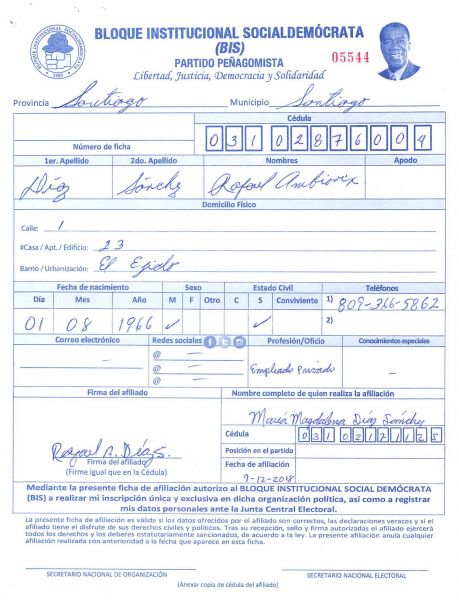 BLOQUE INSTITUCIONAL SOCIALDEMÓCRATA
(BIS)
PARTIDO PEÑAGOMISTA
05544
Libertad, Justicia, Democracia y Solidaridad
BLOQUE INSTITUCIONAL SOCIALDEMOCRATA
Provincia Santiago Municipio Santiago
Cédula
Número de ficha 031 0287600 4
1er. Apellido 2do. Apellido Nombres Apodo
Díaz Sánchez Rafael Ambiorix
Domicilio Físico
Calle: 1
#Casa / Apt. / Edificio: 23
Barrio / Urbanización: El Ejido
Fecha de nacimiento Sexo Estado Civil Teléfonos
Día Mes Año M F Otro C S Conviviente 1) 809-366-5862
01 08 1966 ✓ ✓ 2)
Correo electrónico Redes sociales Profesión/Oficio Conocimientos especiales
@ —
@ — Empleado Privado —
@ —
Firma del afiliado Nombre completo de quien realiza la afiliación
María Magdalena Díaz Sánchez
Cédula 031 0212112 5
Rafael A. Díaz S.
Firma del afiliado Posición en el partido
(Firme igual que en la Cédula) Fecha de afiliación
9-12-2018
Mediante la presente ficha de afiliación autorizo al BLOQUE INSTITUCIONAL SOCIAL DEMÓCRATA
(BIS) a realizar mi inscripción única y exclusiva en dicha organización política, así como a registrar
mis datos personales ante la Junta Central Electoral.
La presente ficha de afiliación es válida si los datos ofrecidos por el afiliado son correctos, las declaraciones veraces y si el
afiliado tiene el disfrute de sus derechos civiles y políticos. Tras su recepción, sello y firma autorizadas el afiliado ejercerá
todos los derechos y los deberes estatutariamente sancionados, de acuerdo a la ley. La presente afiliación anula cualquier
afiliación realizada con anterioridad a la fecha que aparece en esta ficha.
SECRETARIO NACIONAL DE ORGANIZACIÓN SECRETARIO NACIONAL ELECTORAL
(Anexar copia de cédula del afiliado)